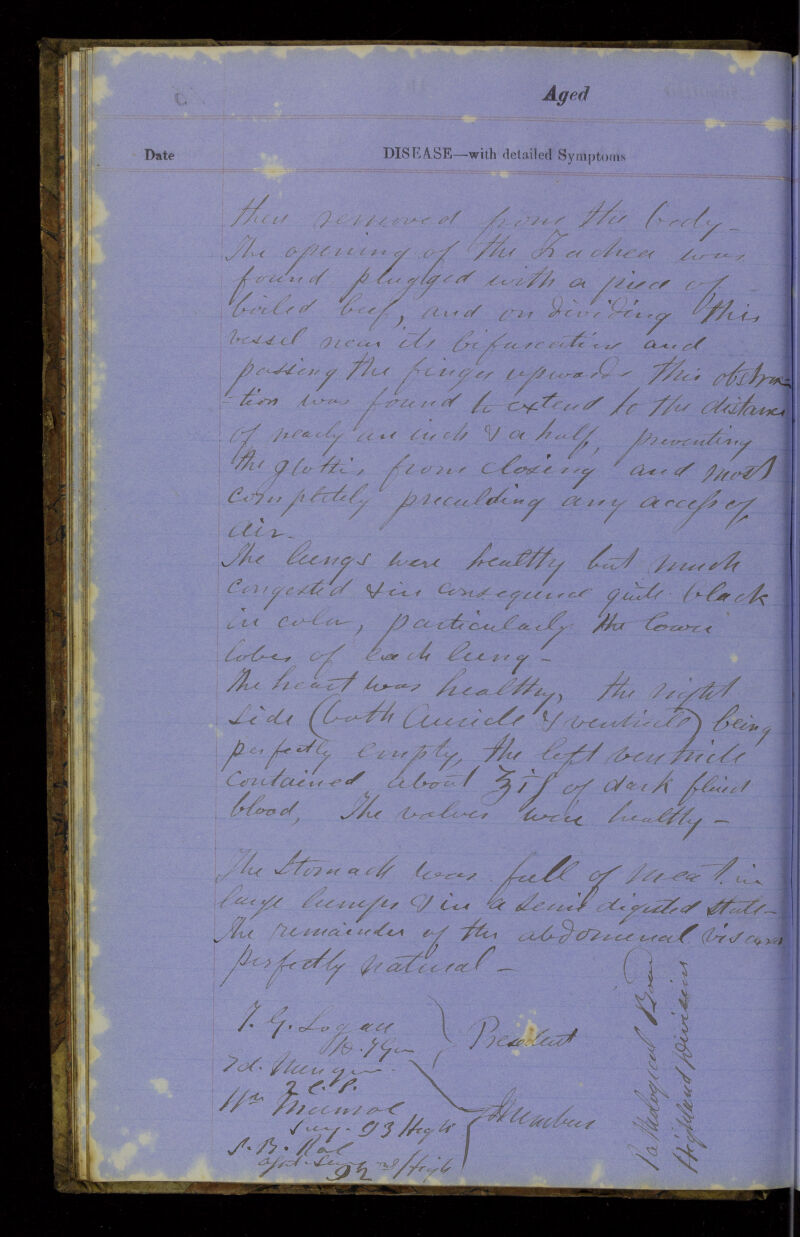 Aged
Date
DISEASE—with detailed Symptoms
then removed from the body –
The opening of the Trachea was
found plugged with a piece of
boiled beef, and on dividing this
vessel near its bifurcation and
passing the finger upwards this obstruc-
-tion was found to extend to the distance
of nearly an inch & a half, preventing
the glottis from closing and most
completely preculding any access of
air –
The lungs were healthy but much
congested & in consequence quite black
in color, particularly the lower
lobes of each lung –
The heart was healthy, the right
side (both Auricle & ventricle) being
perfectly empty, the left ventricle
contained about ʒiʃ of dark fluid
blood, The valves were healthy –
The Stomach was full of meat in
large lumps & in a semi digested state –
The remainder of the abdomenal viscera
perfectly natural –
T. G. Logan
President
Wm Munro
Surg. 93 Highs
Members
S. B.
Asst. Surg 92nd Highs
Pathological Board
Highland Division